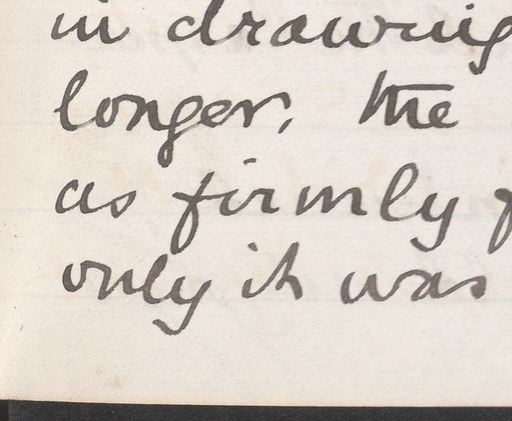 in drawing
longer. The
as firmly f
only it was